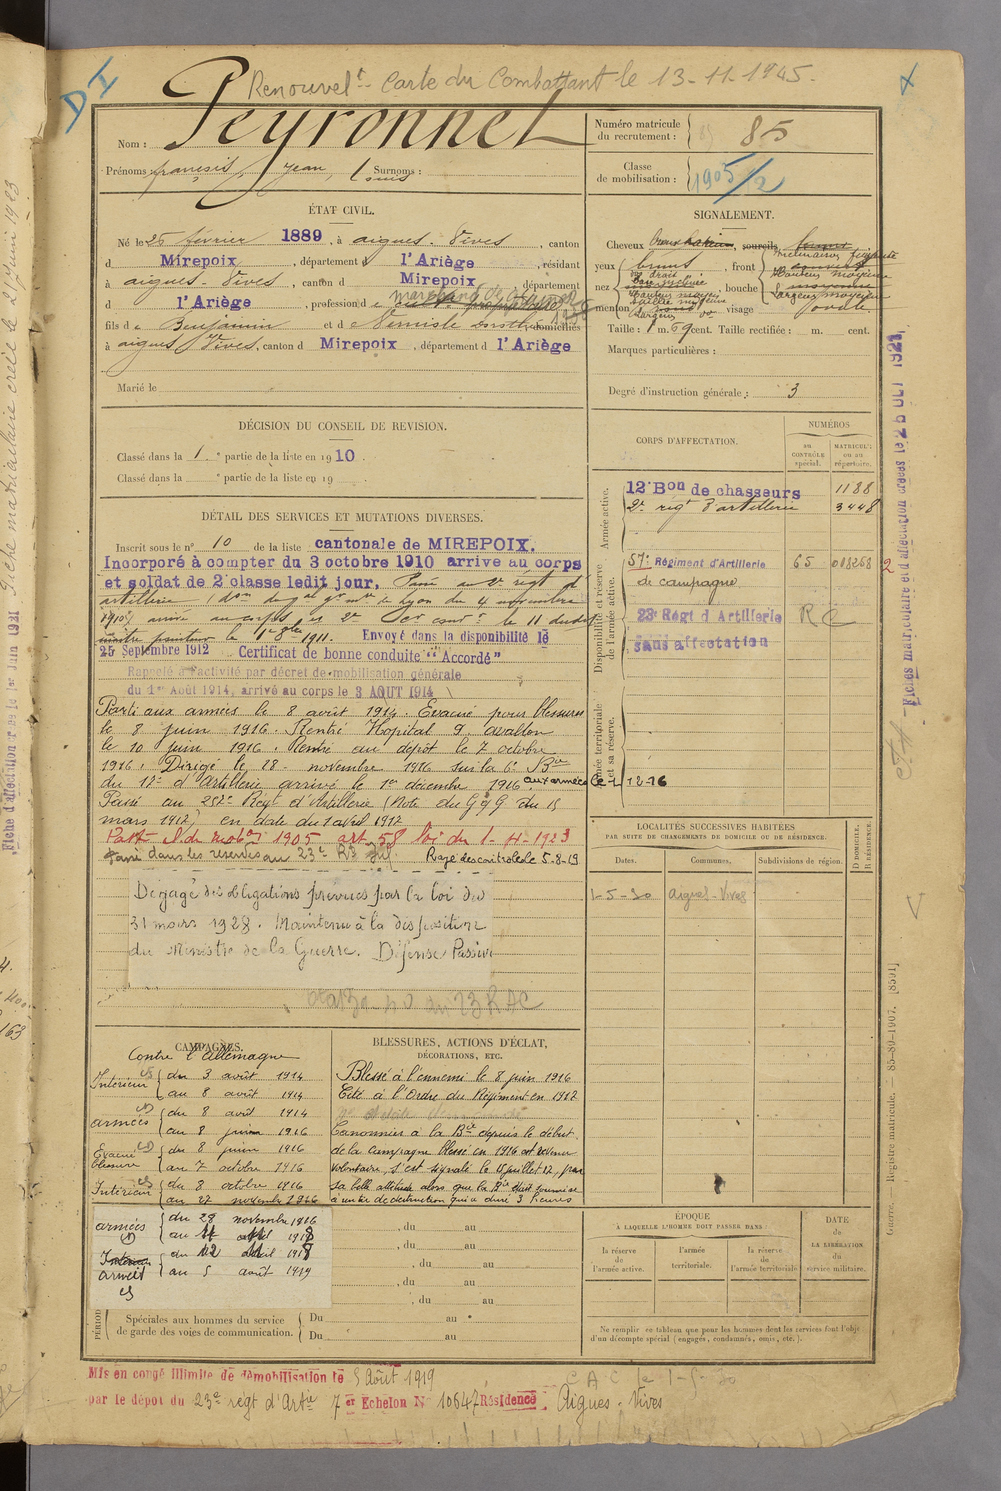 Renouvelt Carte du Combattant le 13-11-1945.
D I
Nom : Peyronnel
Prénoms : françois, Jean, Louis Surnoms :
Numéro matricule du recrutement : 85
Classe de mobilisation : 1905/2
ÉTAT CIVIL.
Né le 25 février 1889, à aigues-Vives, canton
d Mirepoix, département d l'Ariège, résidant
à aigues-Vives, canton d Mirepoix, département
d l'Ariège, profession d
fils de Benjamin et de domiciliés
à aigues Vives, canton d Mirepoix, département d l'Ariège
Marié le
SIGNALEMENT.
Cheveux sourcils
yeux bruns, front
nez bouche
menton visage ovale
Taille : 1 m. 69 cent. Taille rectifiée : m. cent.
Marques particulières :
Degré d'instruction générale : 3
DÉCISION DU CONSEIL DE REVISION.
Classé dans la 1. e partie de la liste en 1910.
Classé dans la e partie de la liste en 19
DÉTAIL DES SERVICES ET MUTATIONS DIVERSES.
Inscrit sous le n° 10 de la liste cantonale de MIREPOIX.
Incorporé à compter du 3 octobre 1910 arrive au corps
et soldat de 2e classe ledit jour. Passé au 2e régt d'
artillerie de Lyon du 4 novembre
1910 arrivé au corps le 11 dudit
maître pointeur le 1er 8bre 1911. Envoyé dans la disponibilité le
25 Septembre 1912 Certificat de bonne conduite "Accordé"
Rappelé à l'activité par décret de mobilisation générale
du 1er Août 1914, arrivé au corps le 3 AOUT 1914
Parti aux armées le 8 août 1914. Evacué pour blessures
le 8 juin 1916. Rentré Hopital 9. avallon
le 10 juin 1916. Rentré au dépôt le 7 octobre
1916. Dirigé le 28 novembre 1916 sur la 6e Bie
du 12e d'Artillerie arrivé le 1er décembre 1916 aux armées le 1-12-16
Passé au 252e Régt d'Artillerie (Note du GQG du 15
mars 1917) en date du 1 avril 1917
Patt Cl. de mobon 1905 art. 58 loi du 1-4-1923
Passé dans les réserves au 23e Rayé des contrôles le 5-8-19
Degagé des obligations prévues par la loi du
31 mars 1928. Maintenu à la disposition
du Ministre de la Guerre. Défense Passive
CORPS D'AFFECTATION.
NUMÉROS
au CONTRÔLE spécial.
MATRICULE ou au répertoire.
Armée active.
12e Bon de chasseurs 1188
2e régt d'artillerie 3448
Disponibilité et réserve de l'armée active.
57e Régiment d'Artillerie 65 018258
de campagne
23e Régt d'Artillerie RC
Sans affectation
Armée territoriale et sa réserve.
LOCALITÉS SUCCESSIVES HABITÉES
PAR SUITE DE CHANGEMENTS DE DOMICILE OU DE RÉSIDENCE.
Dates. Communes. Subdivisions de région.
D DOMICILE. R RÉSIDENCE.
1-5-30 Aigues-Vives
CAMPAGNES.
Contre l'Allemagne
Intérieur du 3 août 1914
au 8 août 1914
armées du 8 août 1914
au 8 juin 1916
Evacué blessure du 8 juin 1916
au 7 octobre 1916
Intérieur du 8 octobre 1916
au 27 novembre 1916
armées du 28 novembre 1916
au 11 avril 1918
Intérieur du 12 avril 1918
armées au 5 août 1919
BLESSURES, ACTIONS D'ÉCLAT,
DÉCORATIONS, ETC.
Blessé à l'ennemi le 8 juin 1916
Cité à l'Ordre du Régiment en 1917
Canonnier à la Bie depuis le début
de la campagne blessé en 1916 est revenu
volontaire, s'est signalé le 15 juillet 17, par
sa belle attitude alors que la Bie était soumise
à un tir de destruction qui a duré 3 heures
, du au
, du au
, du au
, du au
, du au
PÉRIODES
Spéciales aux hommes du service
de garde des voies de communication.
Du au
Du au
ÉPOQUE
À LAQUELLE L'HOMME DOIT PASSER DANS :
la réserve de l'armée active.
l'armée territoriale.
la réserve de l'armée territoriale
DATE de LA LIBÉRATION du service militaire.
Ne remplir ce tableau que pour les hommes dont les services font l'objet
d'un décompte spécial (engagés, condamnés, omis, etc.).
Mis en congé illimité de démobilisation le 5 Août 1919
par le dépôt du 23e régt d'Artie 7 er Echelon N° 10647 Résidence : Aigues-Vives
CAC le 1-5-30
Fiche matriculaire créée le 21 Juin 1923
Fiches matriculaire et d'affectation créées le
Guerre. — Registre matricule. — 85-80-1907. [8591]